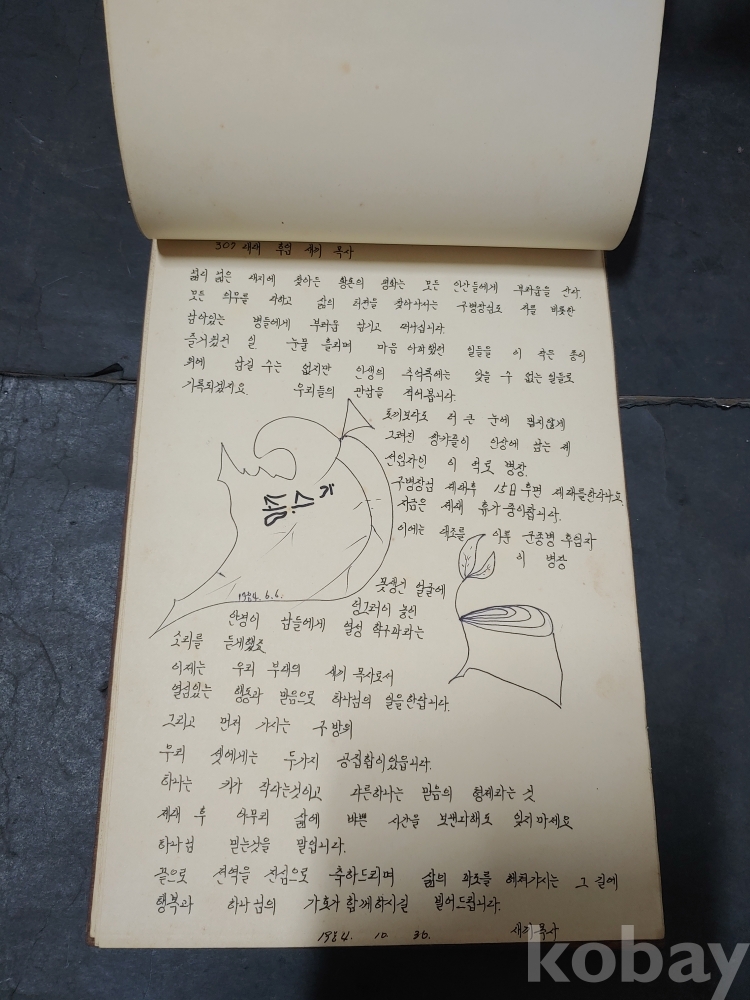 307 새대 후임 새끼 목사
넓디 넓은 새터에 찾아든 황혼의 평화는 모든 인산들에게 부러움을 산다.
모든 의무를 다하고 삶의 터전을 찾아가시는 구병장님도 저를 비롯한
남아있는 병들에게 부러움 남기고 떠나십니다
즐거웠던 일. 눈물 흘리며 마음 아파했던 일들을 이 작은 종이
위에 남길 수는 없지만 인생의 추억록에는 잊을 수 없는 일들로
기록되겠지요. 우리들의 만남을 적어봅니다.
토끼보다도 더 큰 눈에 밉지않게
그려진 쌍카풀이 인상에 남는 제
선임자인 이 억로 병장.
구병장님 제대후 15일 후면 제대를한다나요.
지금은 제대 휴가 중이랍니다.
이에는 대조를 이룬 군종병 후임자
이 병장
1984. 6. 6.
못생긴 얼굴에
덩그러니 놓인
안경이 남들에게 열성 학구파라는
소리를 듣게했죠
이제는 우리 부대의 새끼 목사로서
열심있는 행동과 믿음으로 하나님의 일을한답니다.
그리고 먼저 가시는 구 방의
우리 셋에게는 두가지 공집합이있읍니다.
하나는 키가 작다는것이고 다른하나는 믿음의 형제라는 것
제대 후 아무리 삶에 바쁜 시간을 보낸다해도 잊지마세요
하나님 믿는것을 말입니다.
끝으로 전역을 진심으로 축하드리며 삶의 파도를 헤쳐가시는 그 길에
행복과 하나님의 가호가함께하시길 빌어드립니다.
1984. 10. 30. 새끼목사
kobay